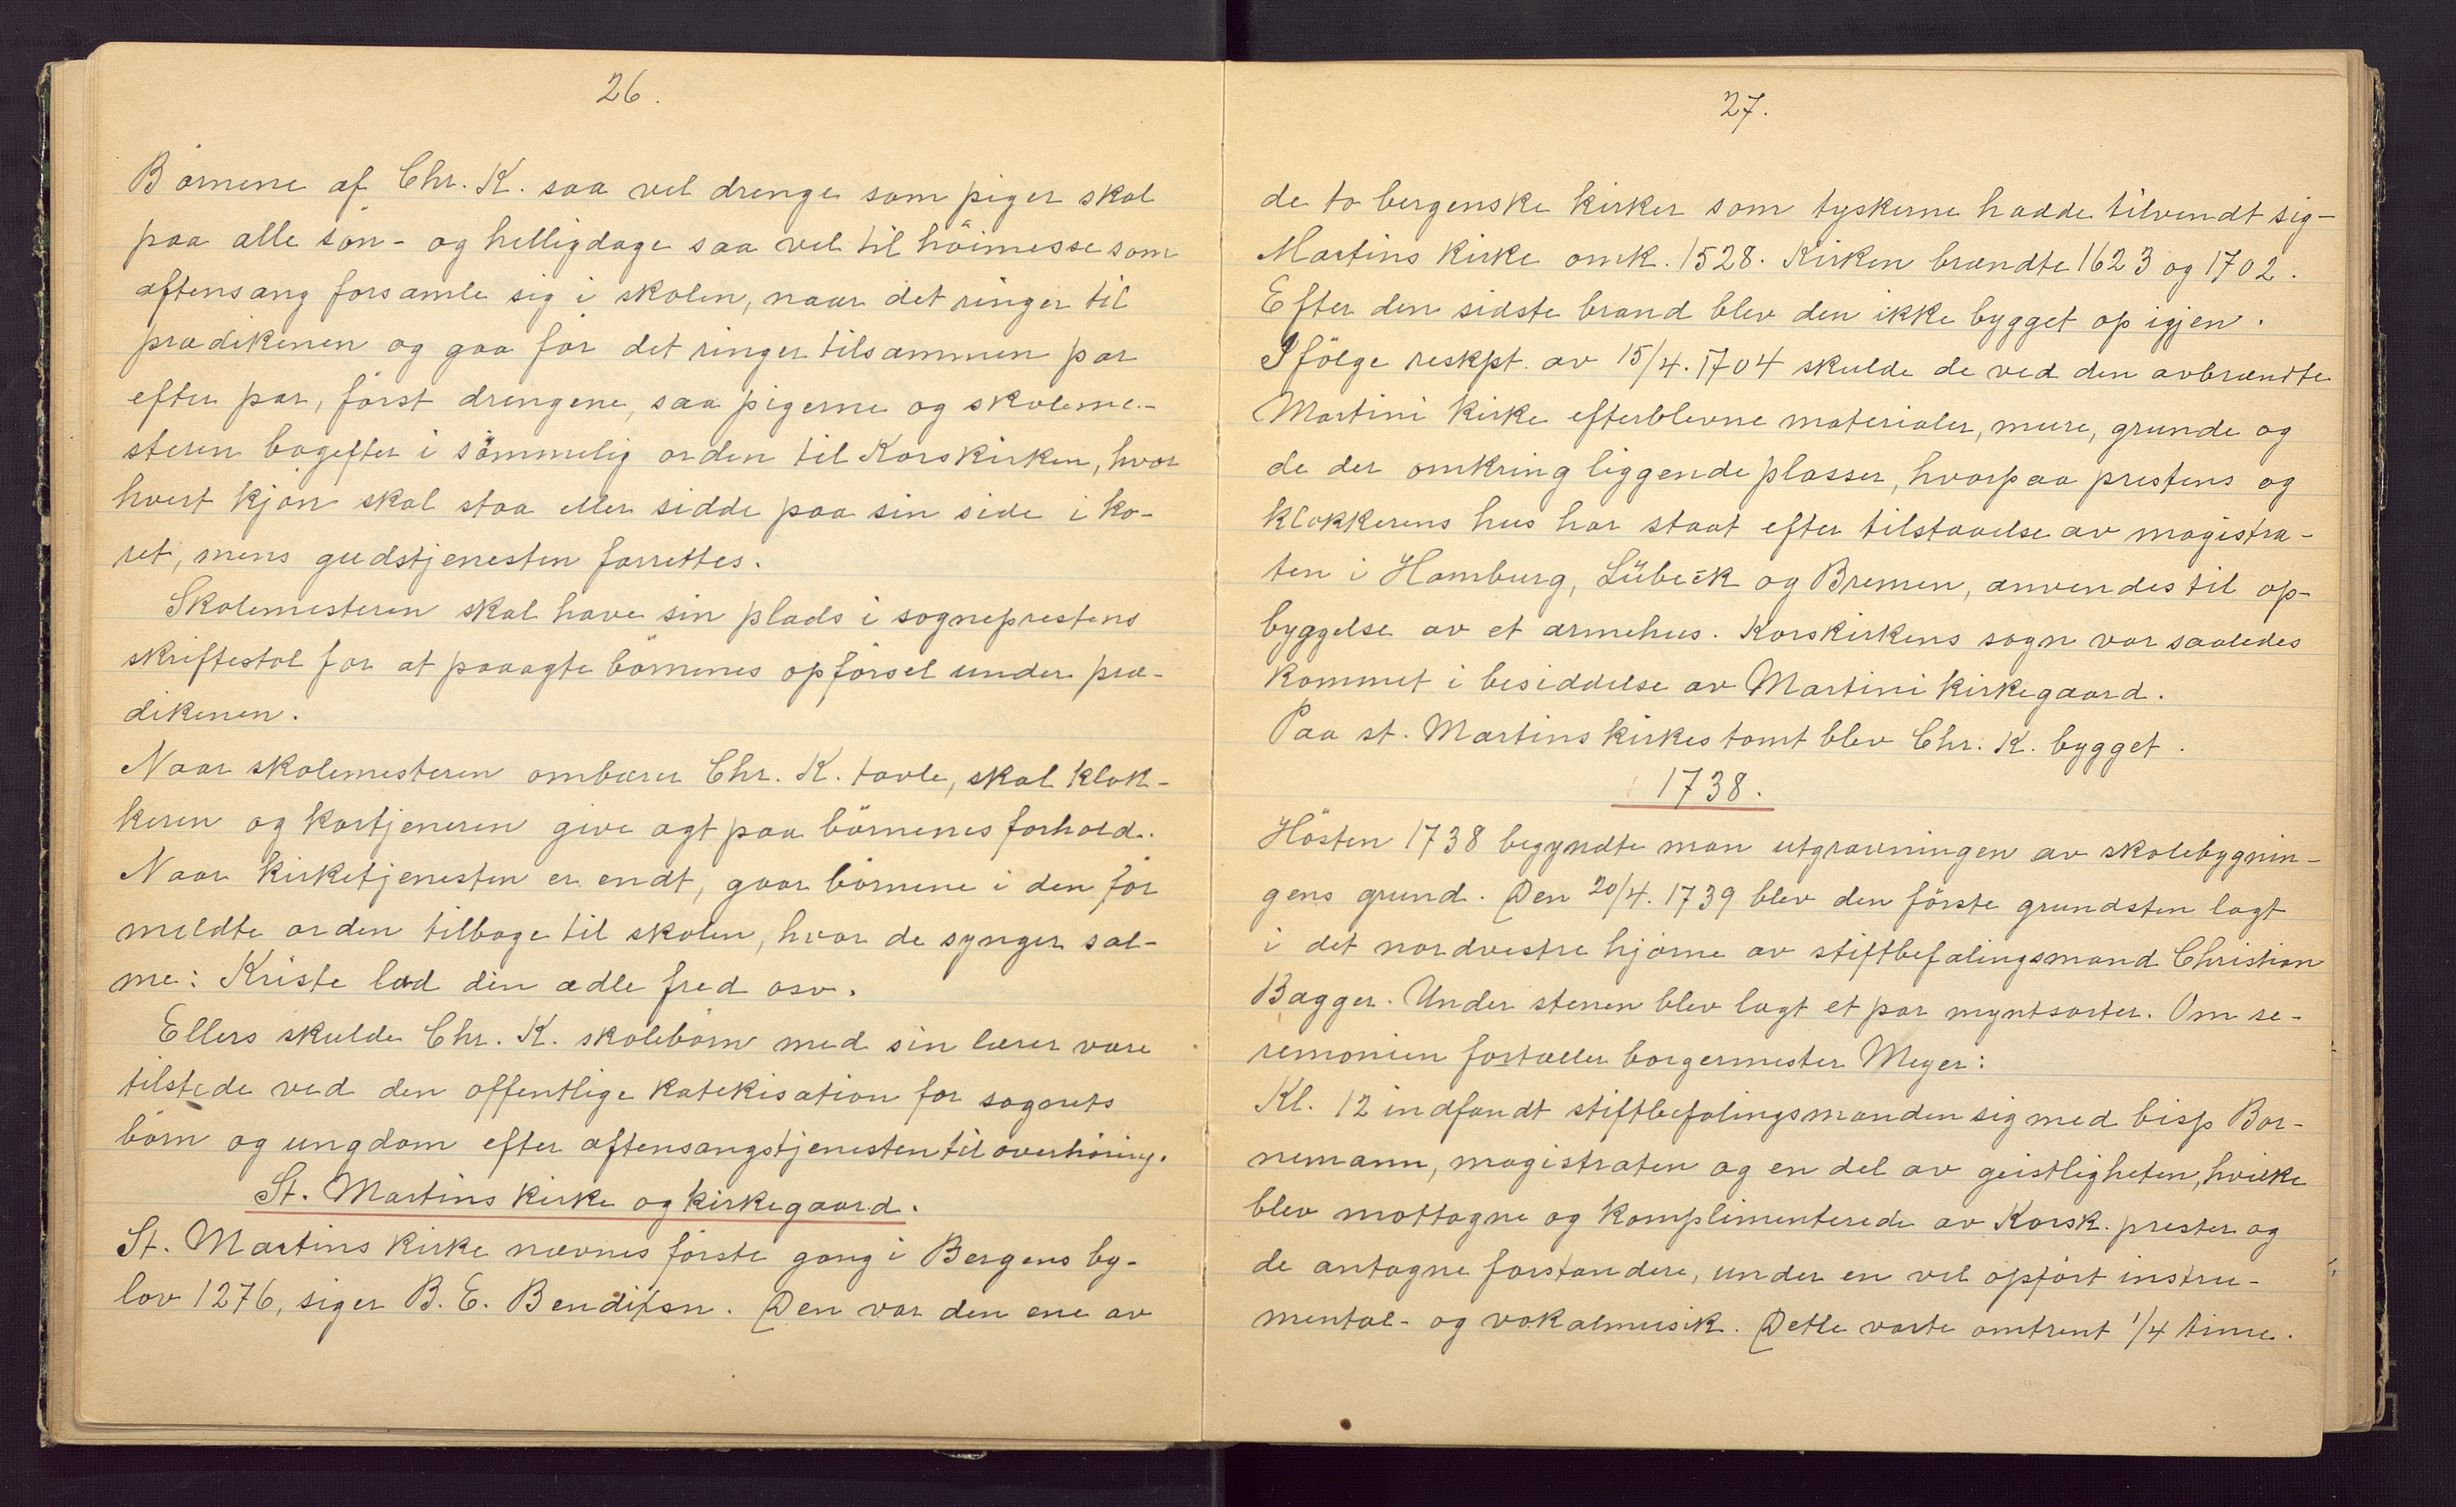 26.
Börnene af Chr. K. saa vel drenge som piger skal
paa alle sön- og helligdage saa vel til höimesse som
aftensang forsamle sig i skolen, naar det ringer til
prædikenen og gaa för det ringer tilsammen par
efter par, först drengene, saa pigerne og skoleme-
steren bagefter i sömmelig orden til Korskirken, hvor
hvert kjön skal staa eller sidde paa sin side i ko-
ret, mens gudstjenesten forrettes.
Skolemesteren skal have sin plads i sogneprestens
skriftestol for at paaagte börnenes opförsel under præ-
dikenen.
Naar skolemesteren ombærer Chr. K. tavle, skal klok-
keren og kortjeneren give agt paa börnenes forhold.
Naar kirketjenesten er endt, gaar börnene i den för
meldte orden tilbage til skolen, hvor de synger sal-
me: Kriste lad din ædle fred osv.
Ellers skulde Chr. K. skolebörn med sin lærer være
tilstede ved den offentlige katekisation for sognets
börn og ungdom efter aftensangstjenesten til overhöring.
St. Martins kirke og kirkegaard.
St. Martins kirke nævnes förste gang i Bergens by-
lov 1276, siger B. E. Bendixen. Den var den ene av
27.
de to bergenske kirker som tyskerne hadde tilvendt sig-
Martins kirke omk. 1528. Kirken brændte 1623 og 1702.
Efter den sidste brand blev den ikke bygget op igjen.
Ifölge reskpt. av 15/4. 1704 skulde de ved den avbrændte
Martini kirke efterblevne materialer, mure, grunde og
de der omkring liggende plasser, hvorpaa prestens og
klokkerens hus har staat efter tilstaaelse av magistra-
ten i Hamburg, Lübeck og Bremen, anvendes til op-
byggelse av et armehus. Korskirkens sogn var saaledes
kommet i besiddelse av Martini kirkegaard.
Paa st. Martins kirkes tomt blev Chr. K. bygget.
1738.
Hösten 1738 begyndte man utgravningen av skolebygnin-
gens grund. Den 20/4. 1739 blev den förste grundsten lagt
i det nordvestre hjörne av stiftbefalingsmand Christian
Bagger. Under stenen blev lagt et par myntsorter. Om se-
remonien fortæller borgermester Meyer:
Kl. 12 indfandt stiftbefalingsmanden sig med bisp Bor-
nemann, magistraten og en del av geistligheten, hvilke
blev mottagne og komplimenterede av Korsk. prester og
de antagne forstandere, under en vel opfört instru-
mental- og vokalmusik. Dette varte omtrent 1/4 time.